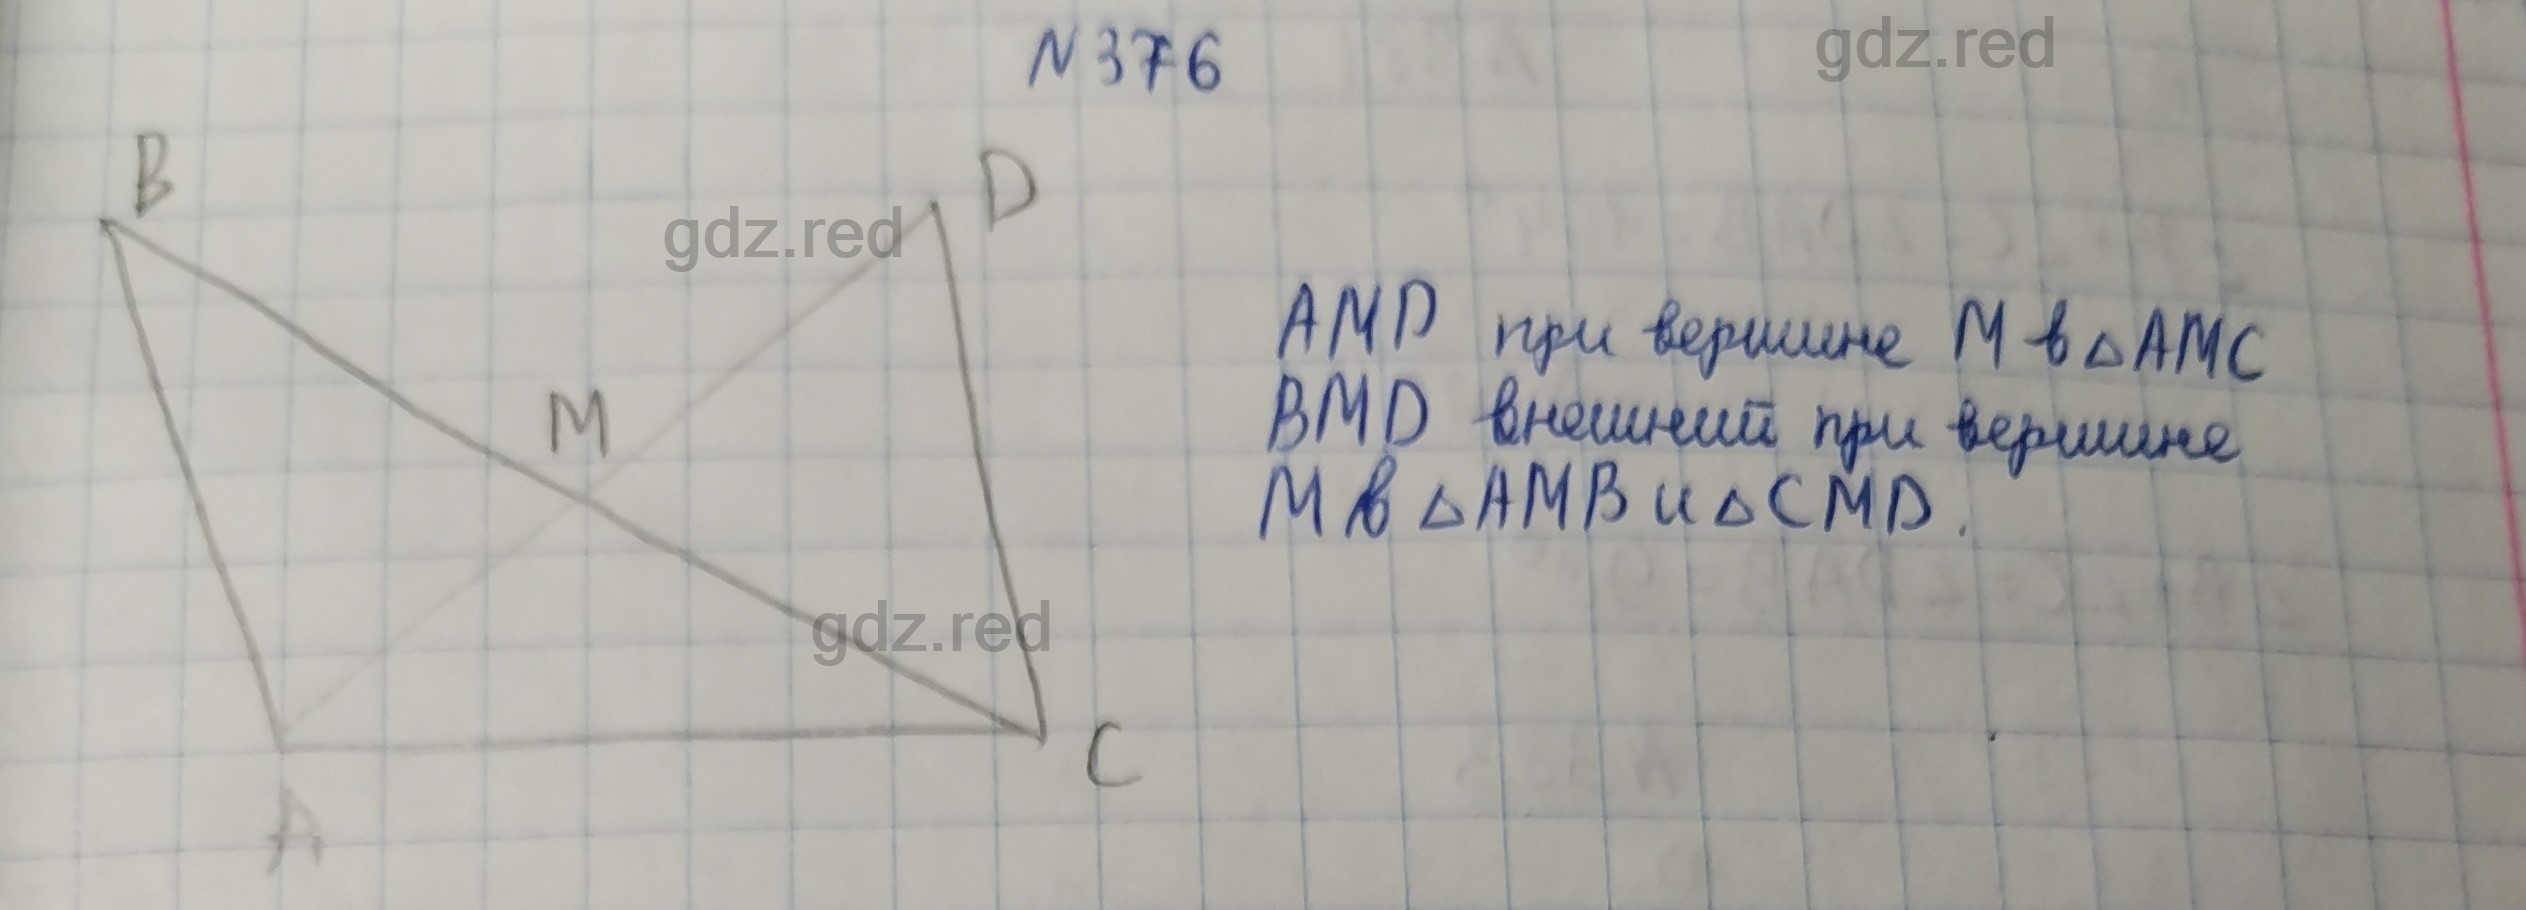 N 376
gdz.red
B
D
gdz.red
M
AMD при вершине M в △ AMC
BMD внешний при вершине
M в △ AMB и △ CMD.
gdz.red
C
A